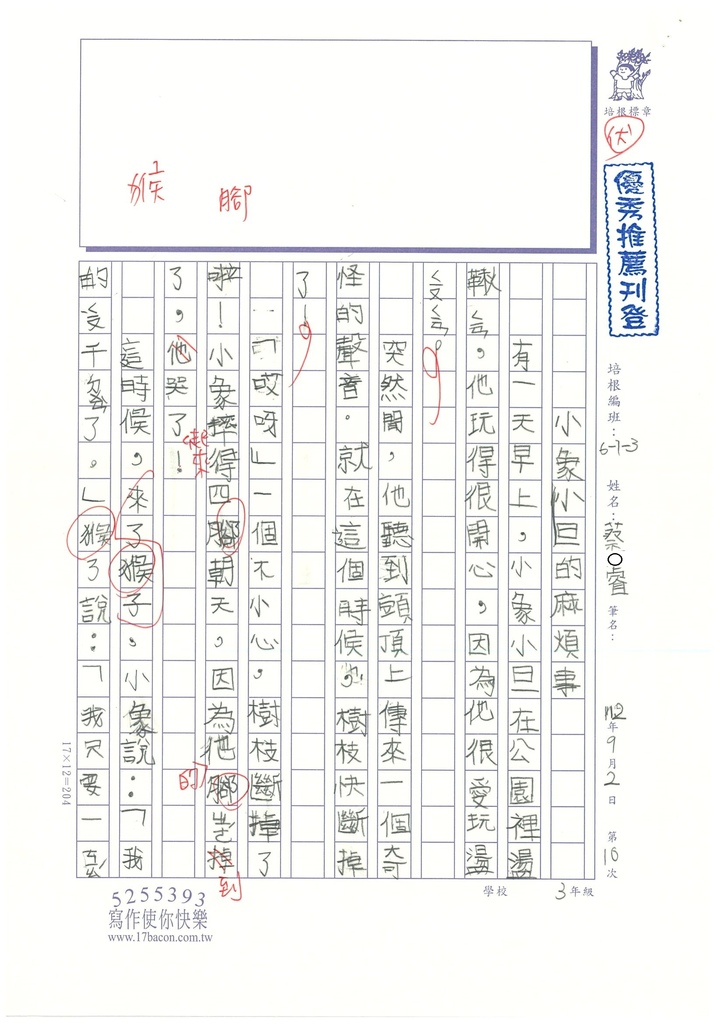 培根標章
伏
優秀推薦刊登
培根編班：6-1-3 姓名：蔡○睿 筆名：
112年9月2日 第10次
3年級
學校
猴 腳
小象小旦的麻煩事
有一天早上，小象小旦在公園裡盪
鞦
。他玩得很開心，因為他很愛玩盪
突然間，他聽到頭頂上傳來一個奇
怪的聲音。就在這個時候，樹枝快斷掉
了！
「哎呀」一個不小心，樹枝斷掉了
啦！小象摔得四腳朝天。因為他腳掉
起來
的
到
了，他哭了！
這時候，來了猴子。小象說：「我
的了。」猴了說：「我只要一
17×12=204
5255393
寫作使你快樂
www.17bacon.com.tw